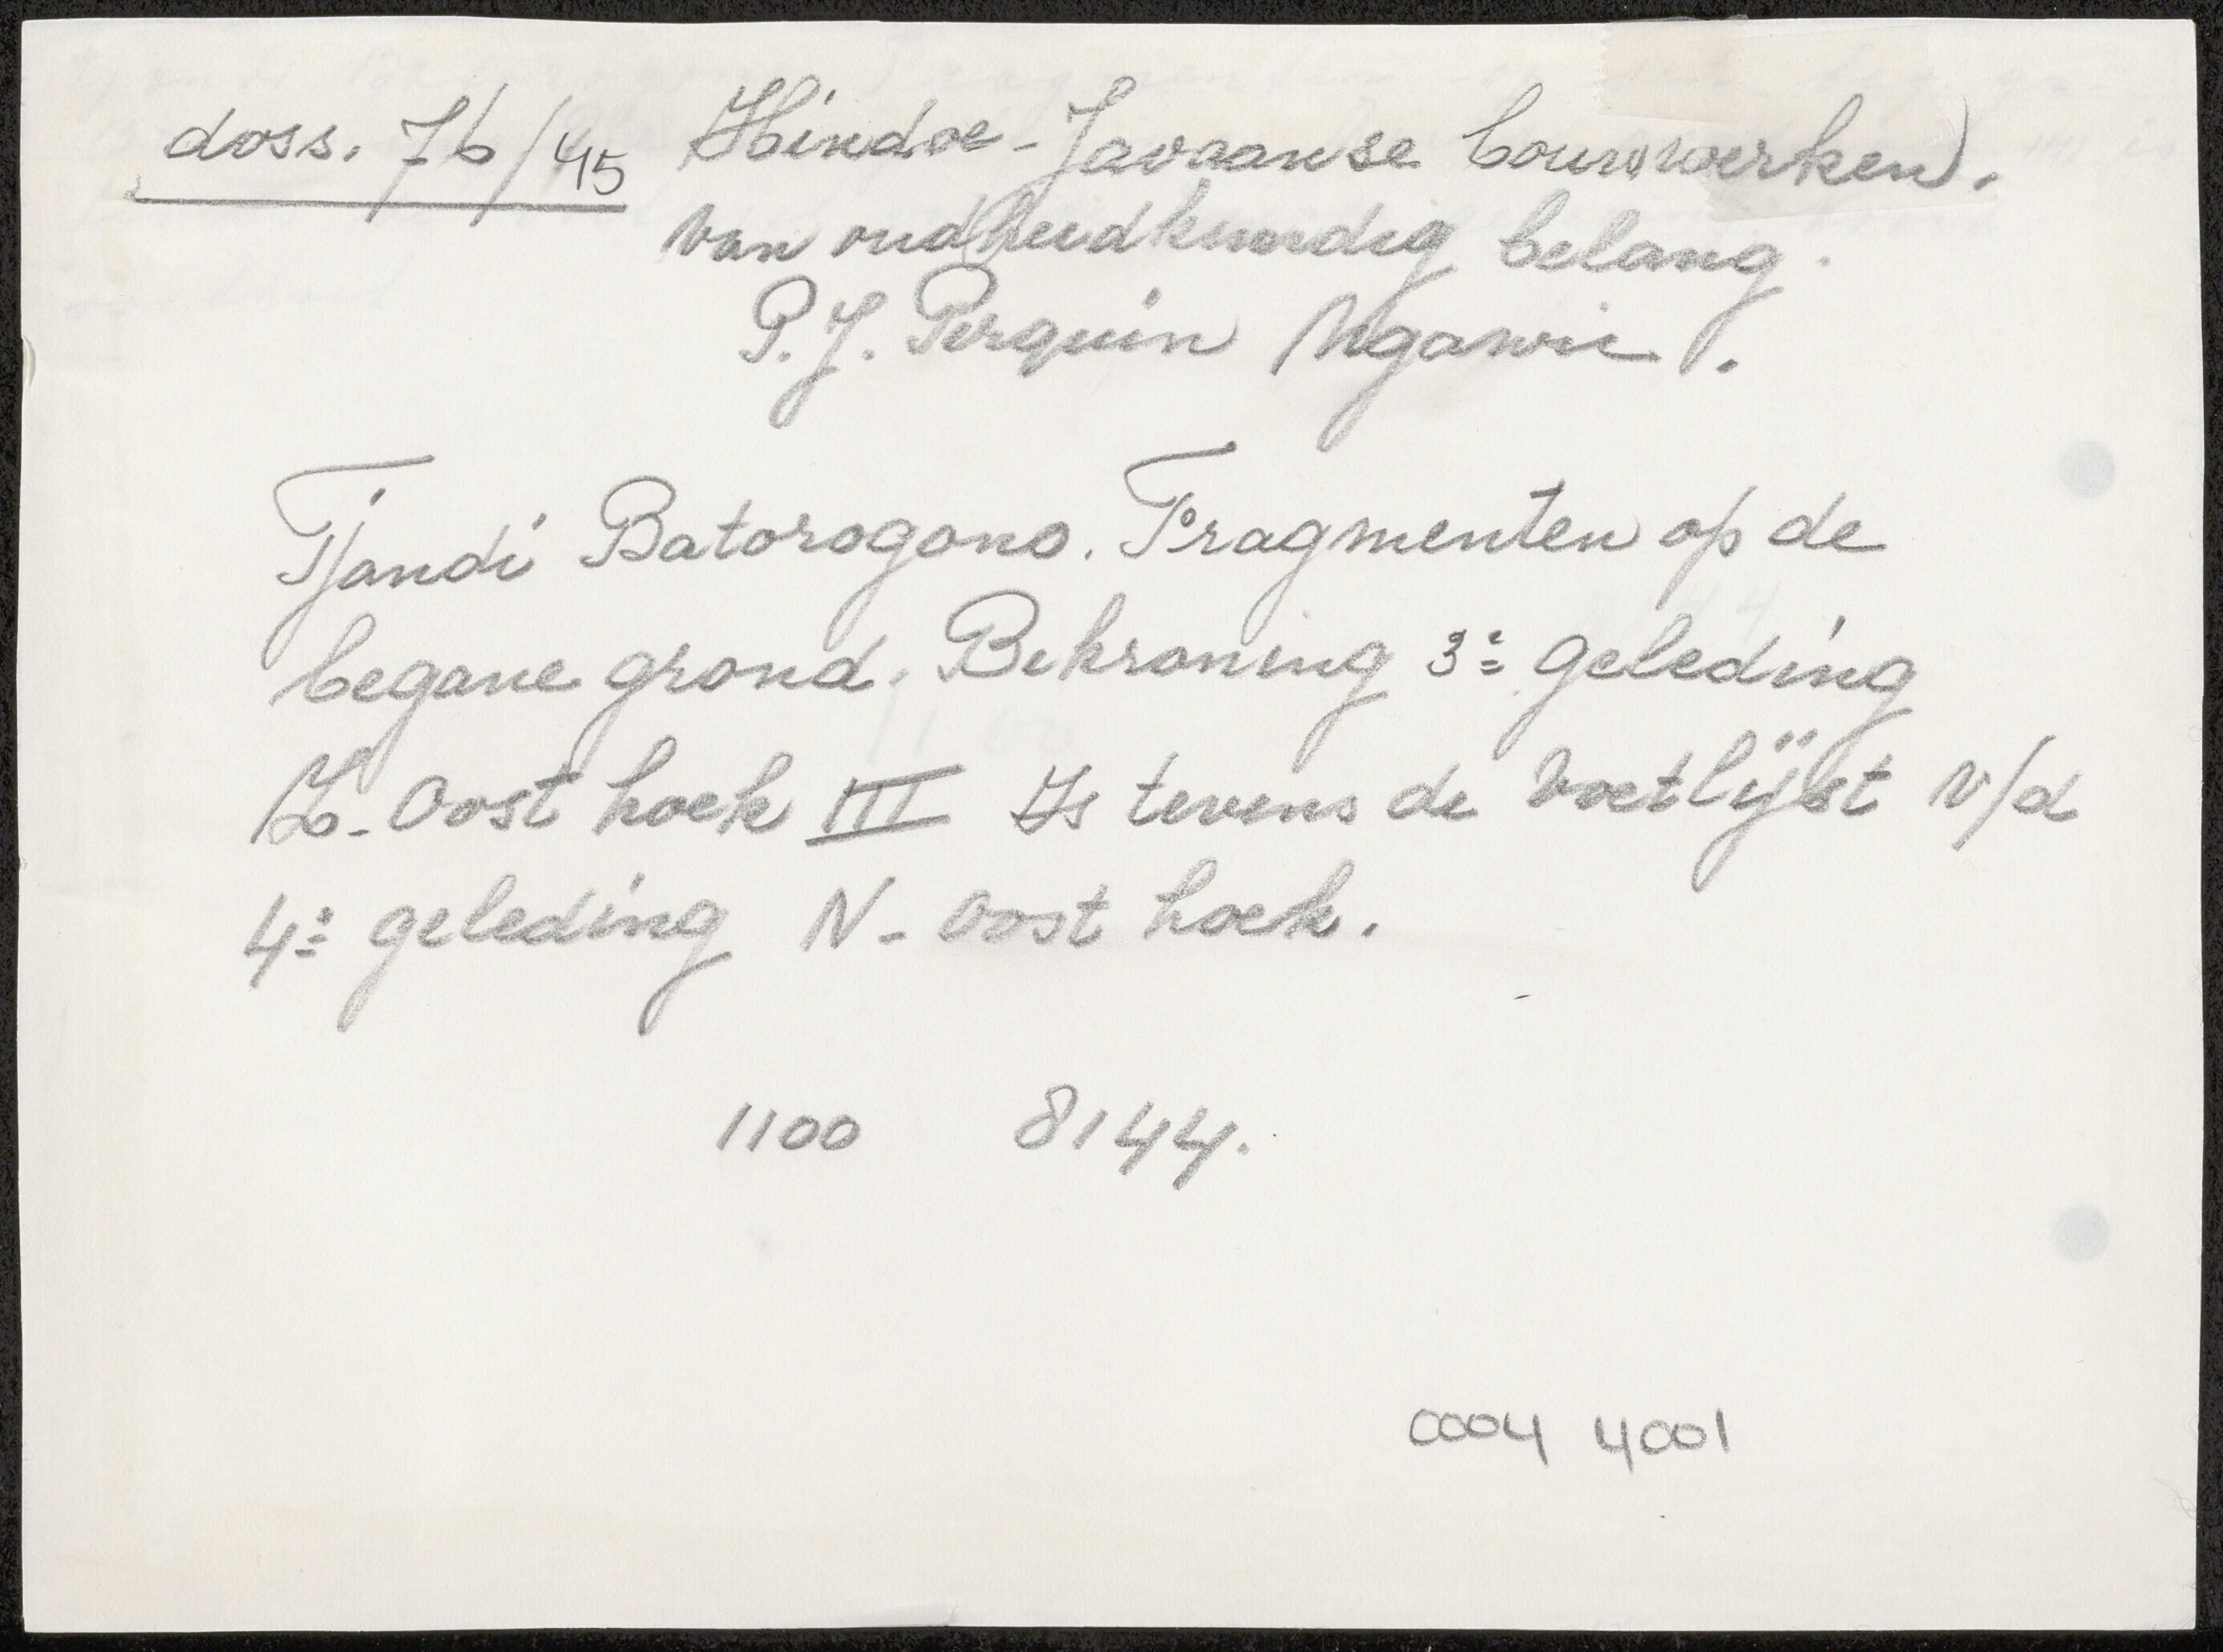 doss. 76/45 Hindoe-Javaanse bouwwerken.
van oudheidkundig belang.
P.J. Perquin Ngawie.
Tjandi Batorogono. Fragmenten op de
begane grond. Bekroning 3e geleding
Z-Oost hoek III Is tevens de voetlijst v/d
4e geleding N-oost hoek.
1100 8144.
0004 4001